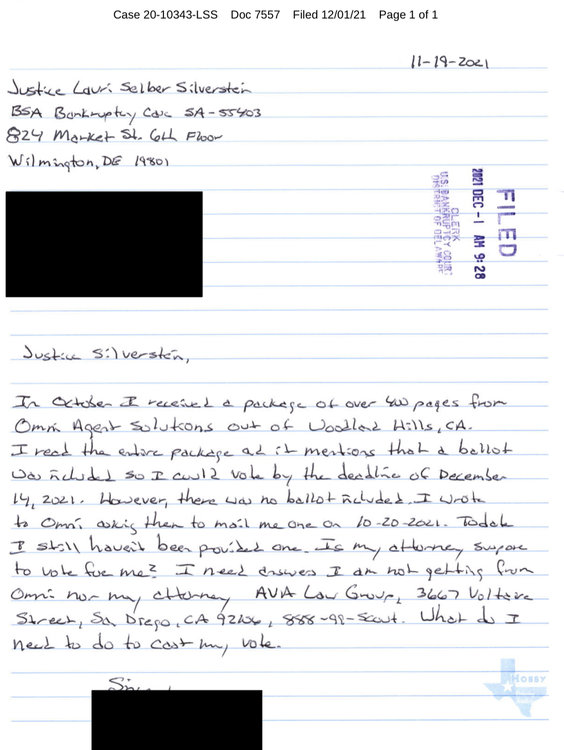 Case 20-10343-LSS Doc 7557 Filed 12/01/21 Page 1 of 1
11-19-2021
Justice Lauri Selber Silverstein
BSA Bankruptcy Case SA-55403
824 Market St. 6th Floor
Wilmington, DE 19801
FILED
2021 DEC -1 AM 9:28
CLERK
U.S. BANKRUPTCY COURT
DISTRICT OF DELAWARE
Justice Silverstein,
In October I received a package of over 400 pages from
Omni Agent Solutions out of Woodland Hills, CA.
I read the entire package and it mentions that a ballot
was included so I could vote by the deadline of December
14, 2021. However, there was no ballot included. I wrote
to Omni asking them to mail me one on 10-20-2021. Todate
I still haven't been provided one. Is my attorney suppose
to vote for me? I need answers I am not getting from
Omni nor my attorney AVA Law Group, 3667 Voltaire
Street, San Diego, CA 92106, 888-99-Scout. What do I
need to do to cast my vote.
HOBBY